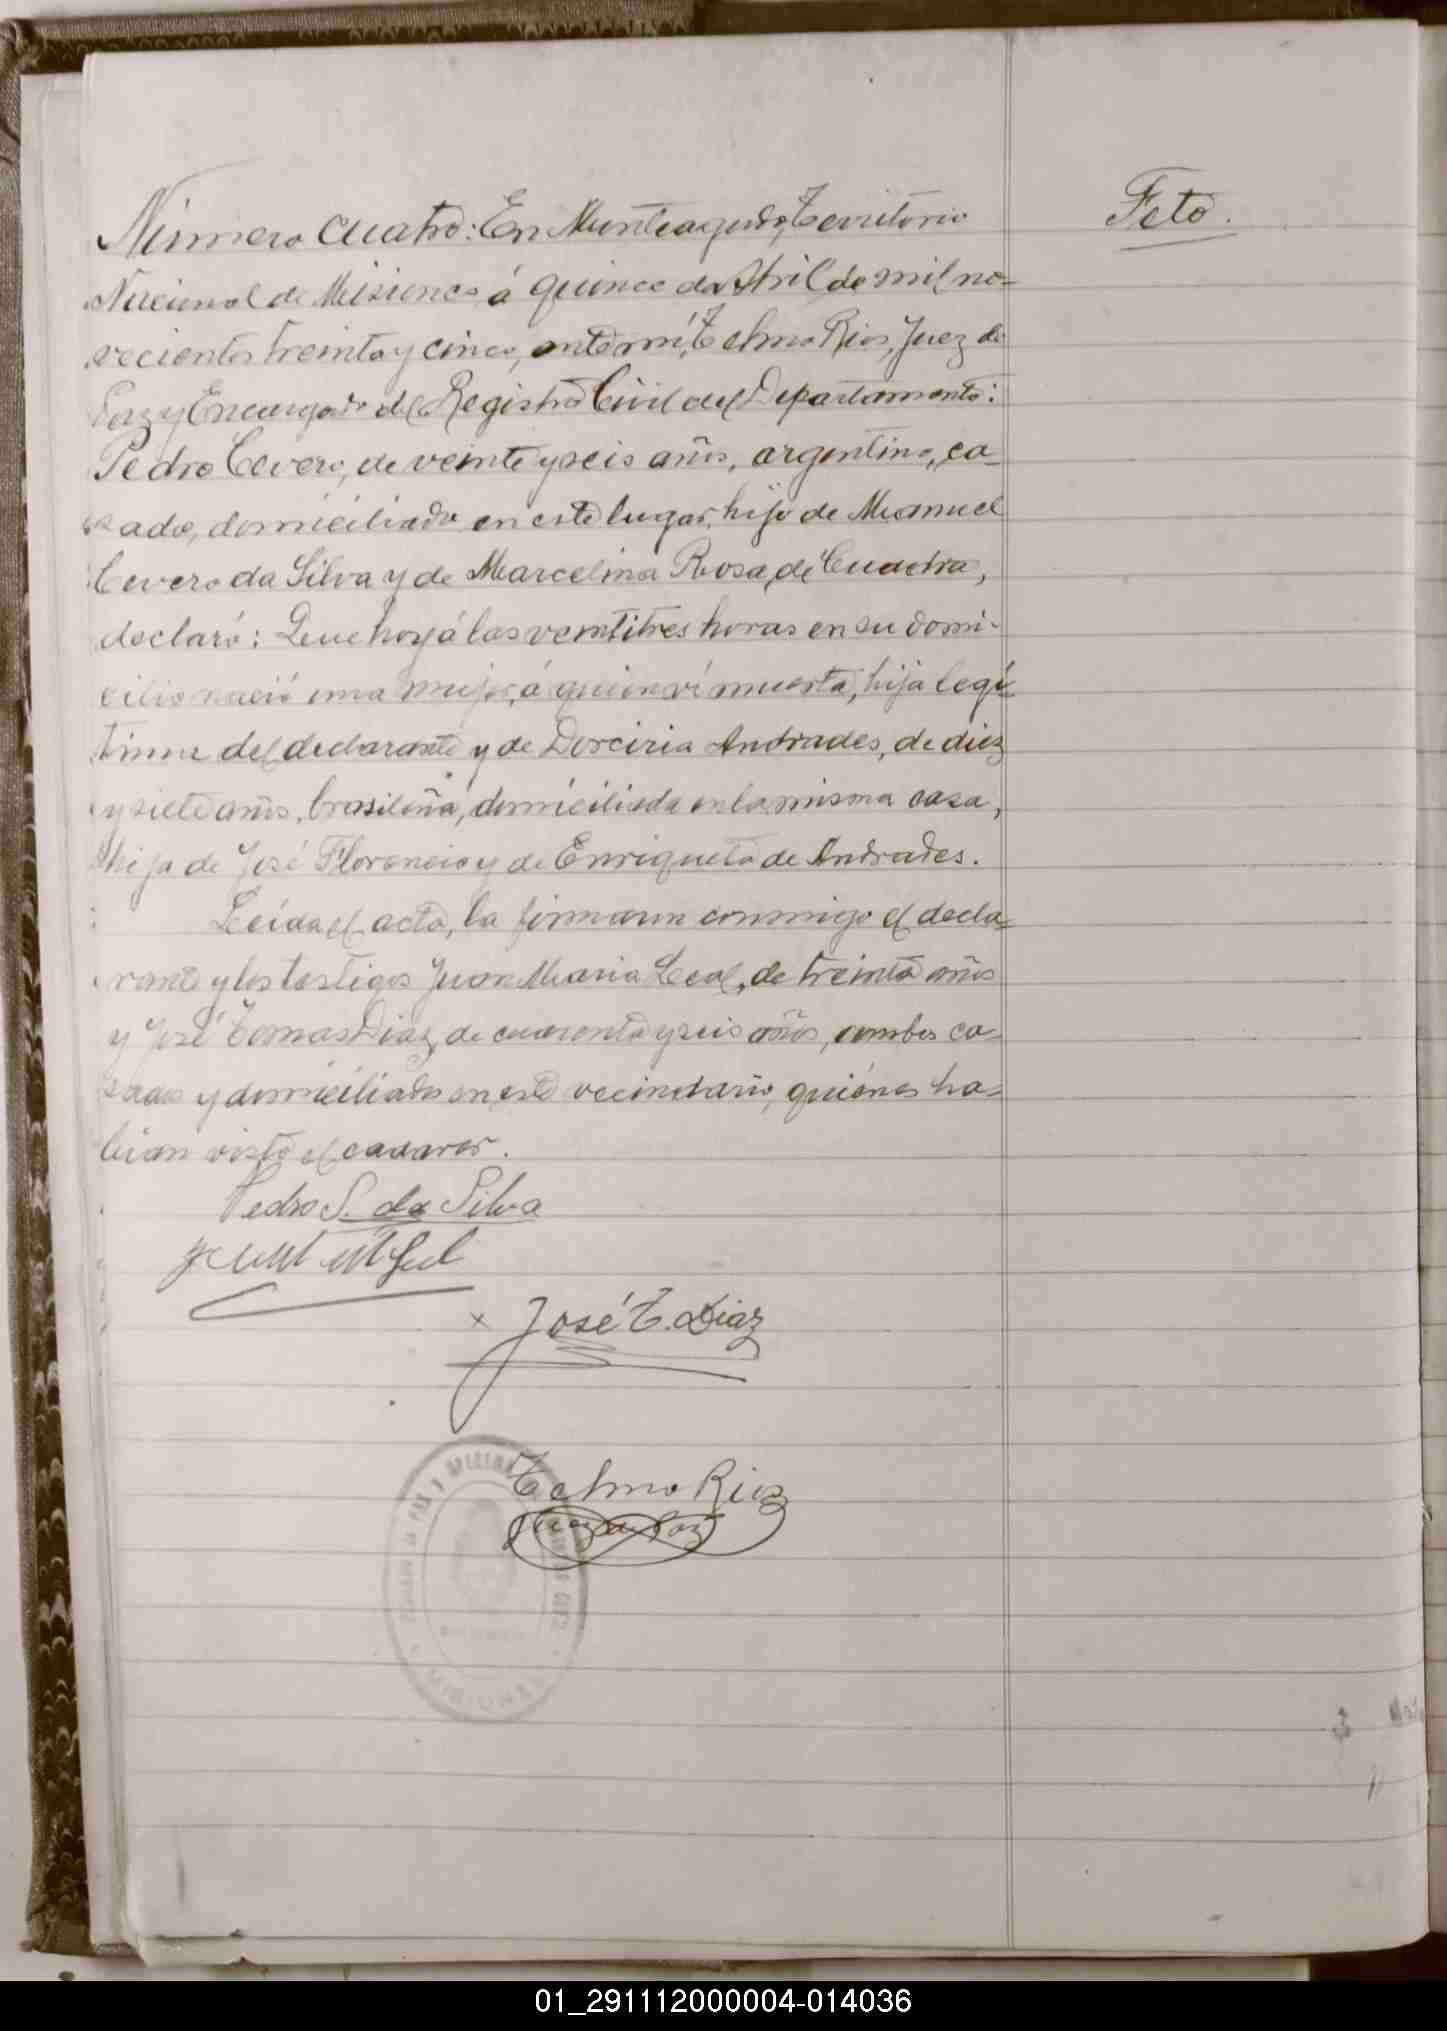 Feto.
Número cuatro: En Monteagudo, Territorio
Nacional de Misiones á quince de Abril de mil no-
vecientos treinta y cinco, ante mí, Telmo Rios, Juez de
Paz y Encargado del Registro Civil del Departamento:
Pedro Cevero, de veinte y seis años, argentino, ca-
sado, domiciliado en este lugar, hijo de Manuel
Cevero da Silva y de Marcelina Rosa de Cuadra,
declaró: Que hoy á las veintitres horas en su domi-
cilio nació una mujer, á quien ví muerta, hija legí-
tima del declarante y de Dorciria Andrades, de diez
y siete años, brasileña, domiciliada en la misma casa,
hija de José Florencio y de Enriqueta de Andrades.
Leída el acta, la firmaron conmigo el decla-
rante y los testigos Juan Maria Leal, de treinta años
y José Tomas Diaz, de cuarenta y seis años, ambos ca-
sados y domiciliado en este vecindario, quiénes ha-
bian visto el cadaver.
Pedro S. da Silva
José T. Diaz
Telmo Rios
Juez de Paz
MISIONES
01_291112000004-014036